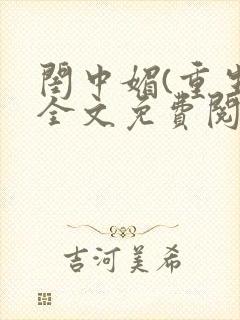 閨中媚(重生
全文免費閱
吉河美希